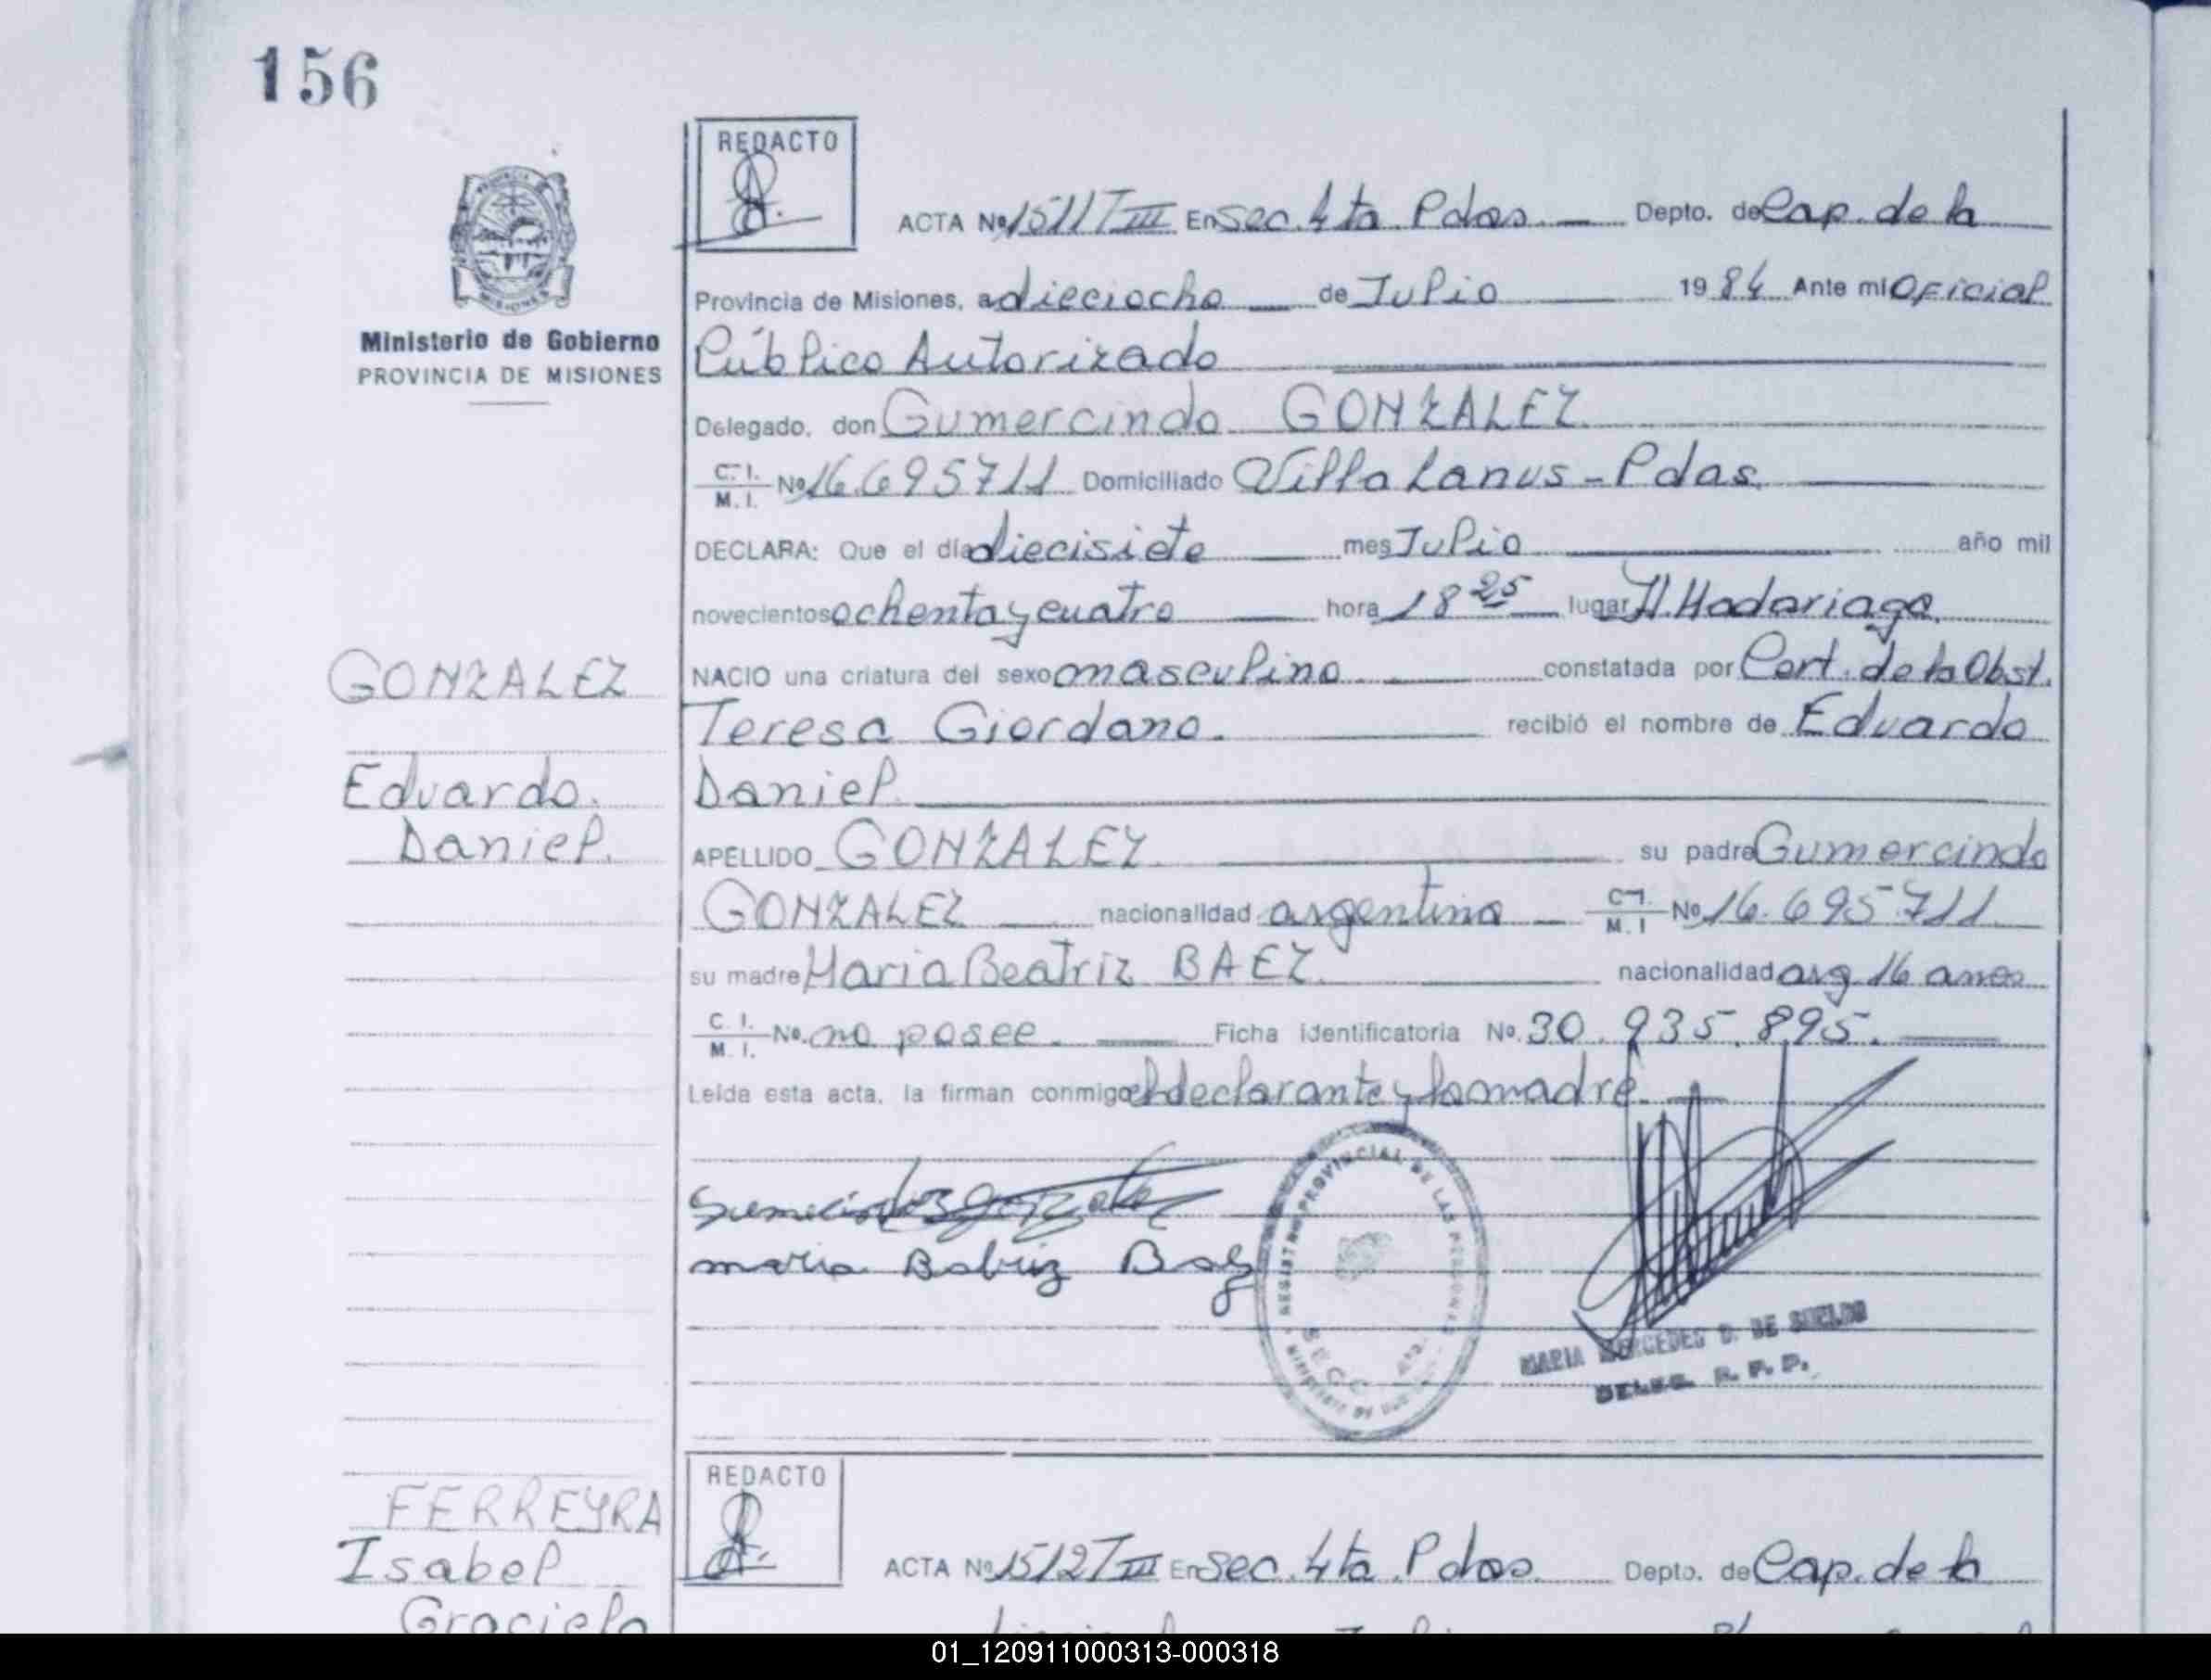 156
REDACTO
ACTA Nº 1511 T III En Sec. 4ta Pdas. Depto. de Cap. de la
Provincia de Misiones, a dieciocho de Julio 1984 Ante mi Oficial
Ministerio de Gobierno
PROVINCIA DE MISIONES
Público Autorizado
Delegado, don Gumercindo GONZALEZ
C.I. M.I. Nº 16.695711 Domiciliado Villa Lanus - Pdas.
DECLARA: Que el día diecisiete mes Julio año mil
novecientos ochenta y cuatro hora 18 25 lugar H. Madariaga.
GONZALEZ
NACIO una criatura del sexo masculino constatada por Cert. de la Obst.
Teresa Giordano. recibió el nombre de Eduardo
Eduardo.
Daniel.
Daniel.
APELLIDO GONZALEZ su padre Gumercindo
GONZALEZ nacionalidad argentina C.I. M.I Nº 16.695.711
su madre Maria Beatriz BAEZ nacionalidad arg. 16 anos
C.I. M.I. Nº no posee. Ficha identificatoria Nº 30.935.895.
Leida esta acta, la firman conmigo el declarante y la madre.
REGISTRO PROVINCIAL DE LAS PERSONAS
SECC. 4ta.
MARIA MERCEDES D. DE SUELDO
DELEG. R. P. P.
REDACTO
FERREYRA
Isabel
Graciela
ACTA Nº 1512 T III En Sec. 4ta. Pdas. Depto. de Cap. de la
01_120911000313-000318